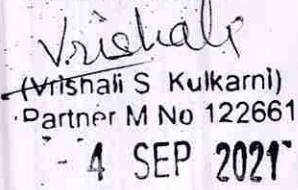 Vrishali
(Vrishali S Kulkarni)
Partner M No 122661
- 4 SEP 2021